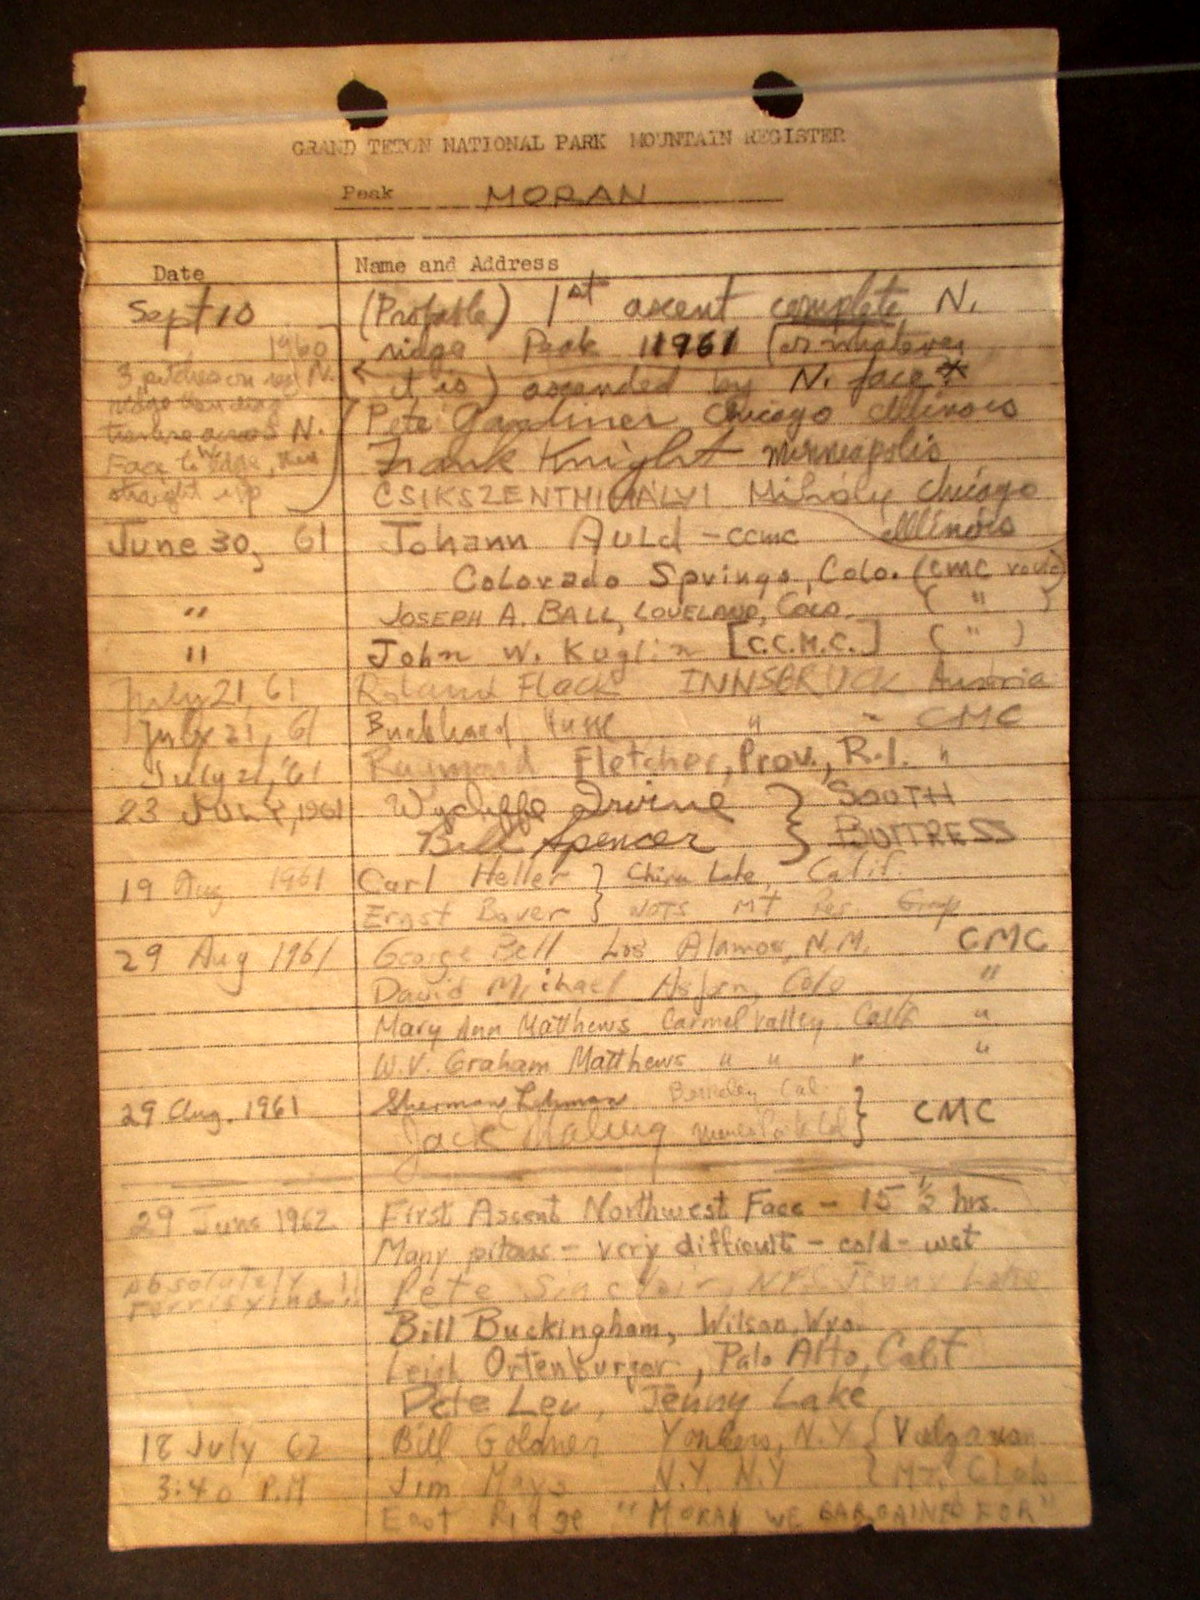 GRAND TETON NATIONAL PARK MOUNTAIN REGISTER
Peak MORAN
Date Name and Address
Sept 10 (Probable) 1st ascent complete N.
1960 ridge Peak 11961 (or whatever
3 pitches on N. it is) ascended by N. face *
ridge Pete Gardiner Chicago Illinois
traverse across N. Frank Knight Minneapolis
Face to W edge, then CSIKSZENTMIHALYI Mihaly Chicago
straight up Illinois
June 30, 61 Johann Auld - ccmc
Colorado Springs, Colo. (CMC route)
" JOSEPH A. BALL, LOVELAND, COLO. ( " )
" John W. Kuglin [C.C.M.C.] ( " )
July 21, 61 Roland Flack INNSBRUCK Austria
July 21, 61 " - CMC
July 21, '61 Raymond Fletcher, Prov., R.I. "
23 JULY, 1961 Wycliffe Irvine } SOUTH
Bill Spencer } BUTTRESS
19 Aug 1961 Carl Heller } China Lake, Calif.
Ernst Bower } NOTS Mt Res. Group
29 Aug 1961 George Bell Los Alamos, N.M. CMC
David Michael Aspen, Colo "
Mary Ann Matthews Carmel Valley Calif. "
W.V. Graham Matthews " " " "
29 Aug. 1961 Sherman Lehman Berkeley Cal } CMC
Jack }
29 June 1962 First Ascent Northwest Face - 15 1/2 hrs.
Many pitons - very difficult - cold - wet
Absolutely Pete Sinclair, NPS Jenny Lake
Terrifying!!
Bill Buckingham, Wilson, Wyo.
Leigh Ortenburger, Palo Alto, Calif
Pete Lev, Jenny Lake
18 July 62 Bill Goldner Yonkers, N.Y. { Vulgarian
3:40 P.M Jim Mays N.Y. N.Y { MT. Club
East Ridge "MORAN WE BARGAINED FOR"